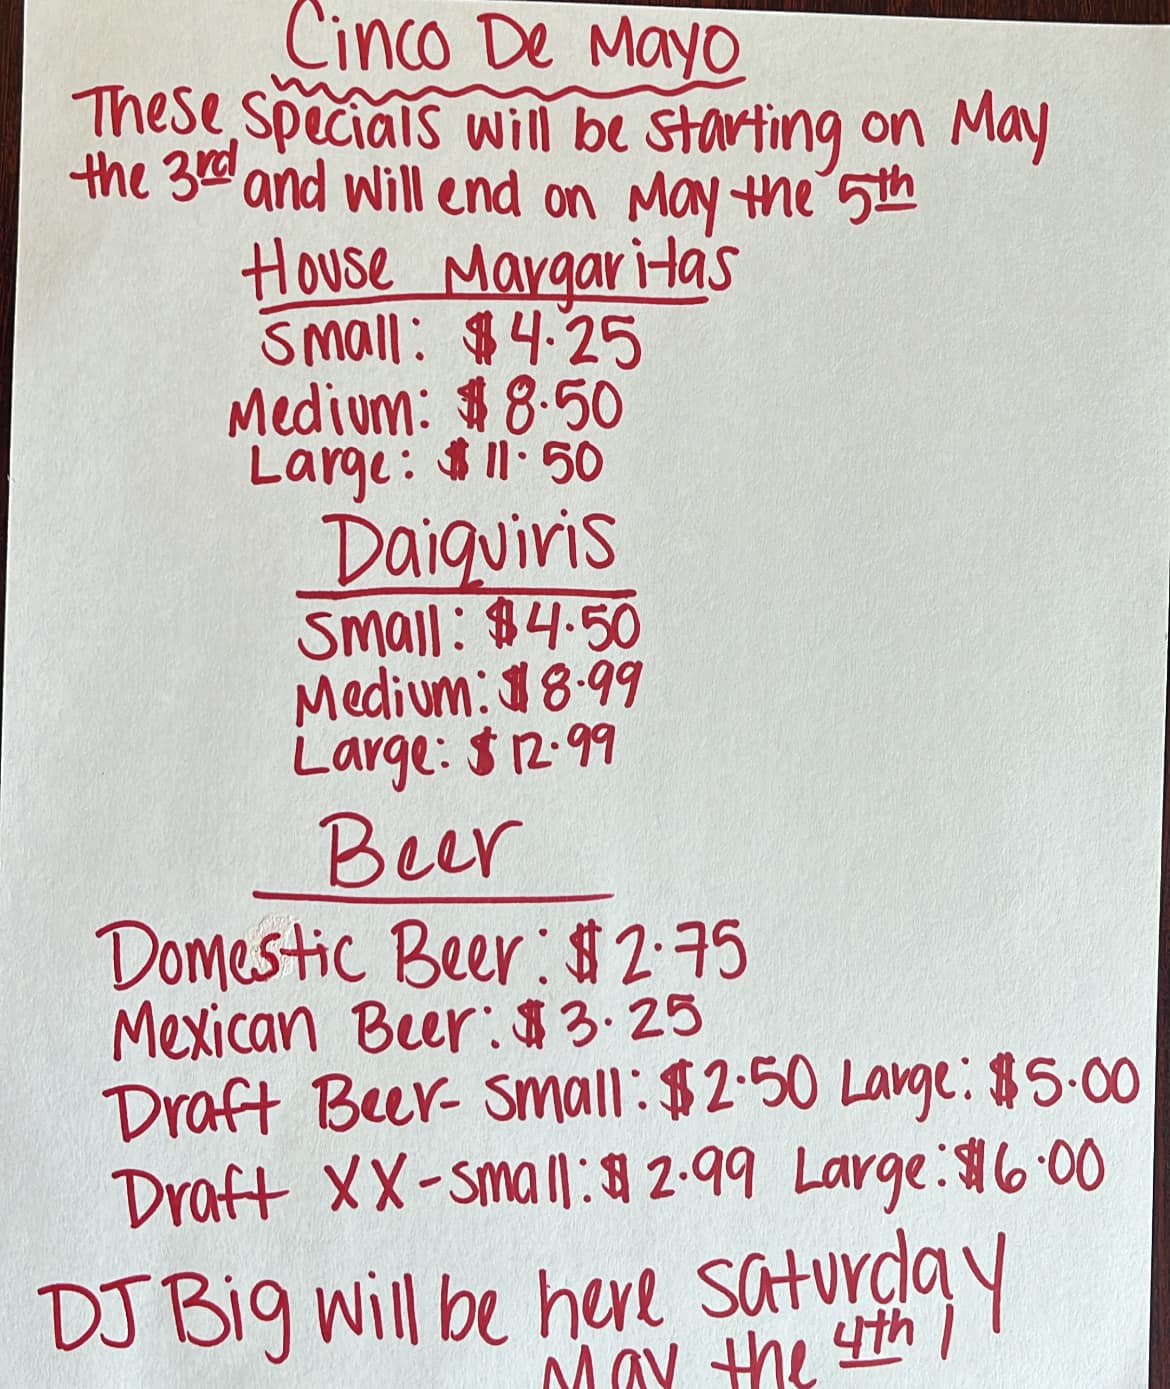 Cinco De Mayo
These specials will be starting on May
the 3rd and will end on May the 5th
House Margaritas
Small: $4.25
Medium: $8.50
Large: $11.50
Daiquiris
Small: $4.50
Medium: $8.99
Large: $12.99
Beer
Domestic Beer: $2.75
Mexican Beer: $3.25
Draft Beer- Small: $2.50 Large: $5.00
Draft XX-Small: $2.99 Large: $6.00
DJ Big will be here saturday
May the 4th!